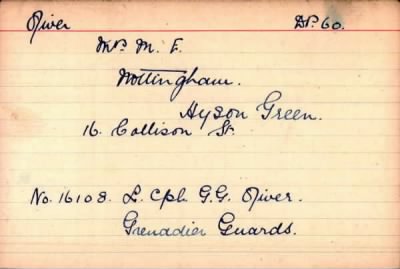 River DP. 60.
Mrs M. E.
Nottingham.
Hyson Green.
16. Collison St.
No. 16108. L. Cpl. G.G. River.
Grenadier Guards.